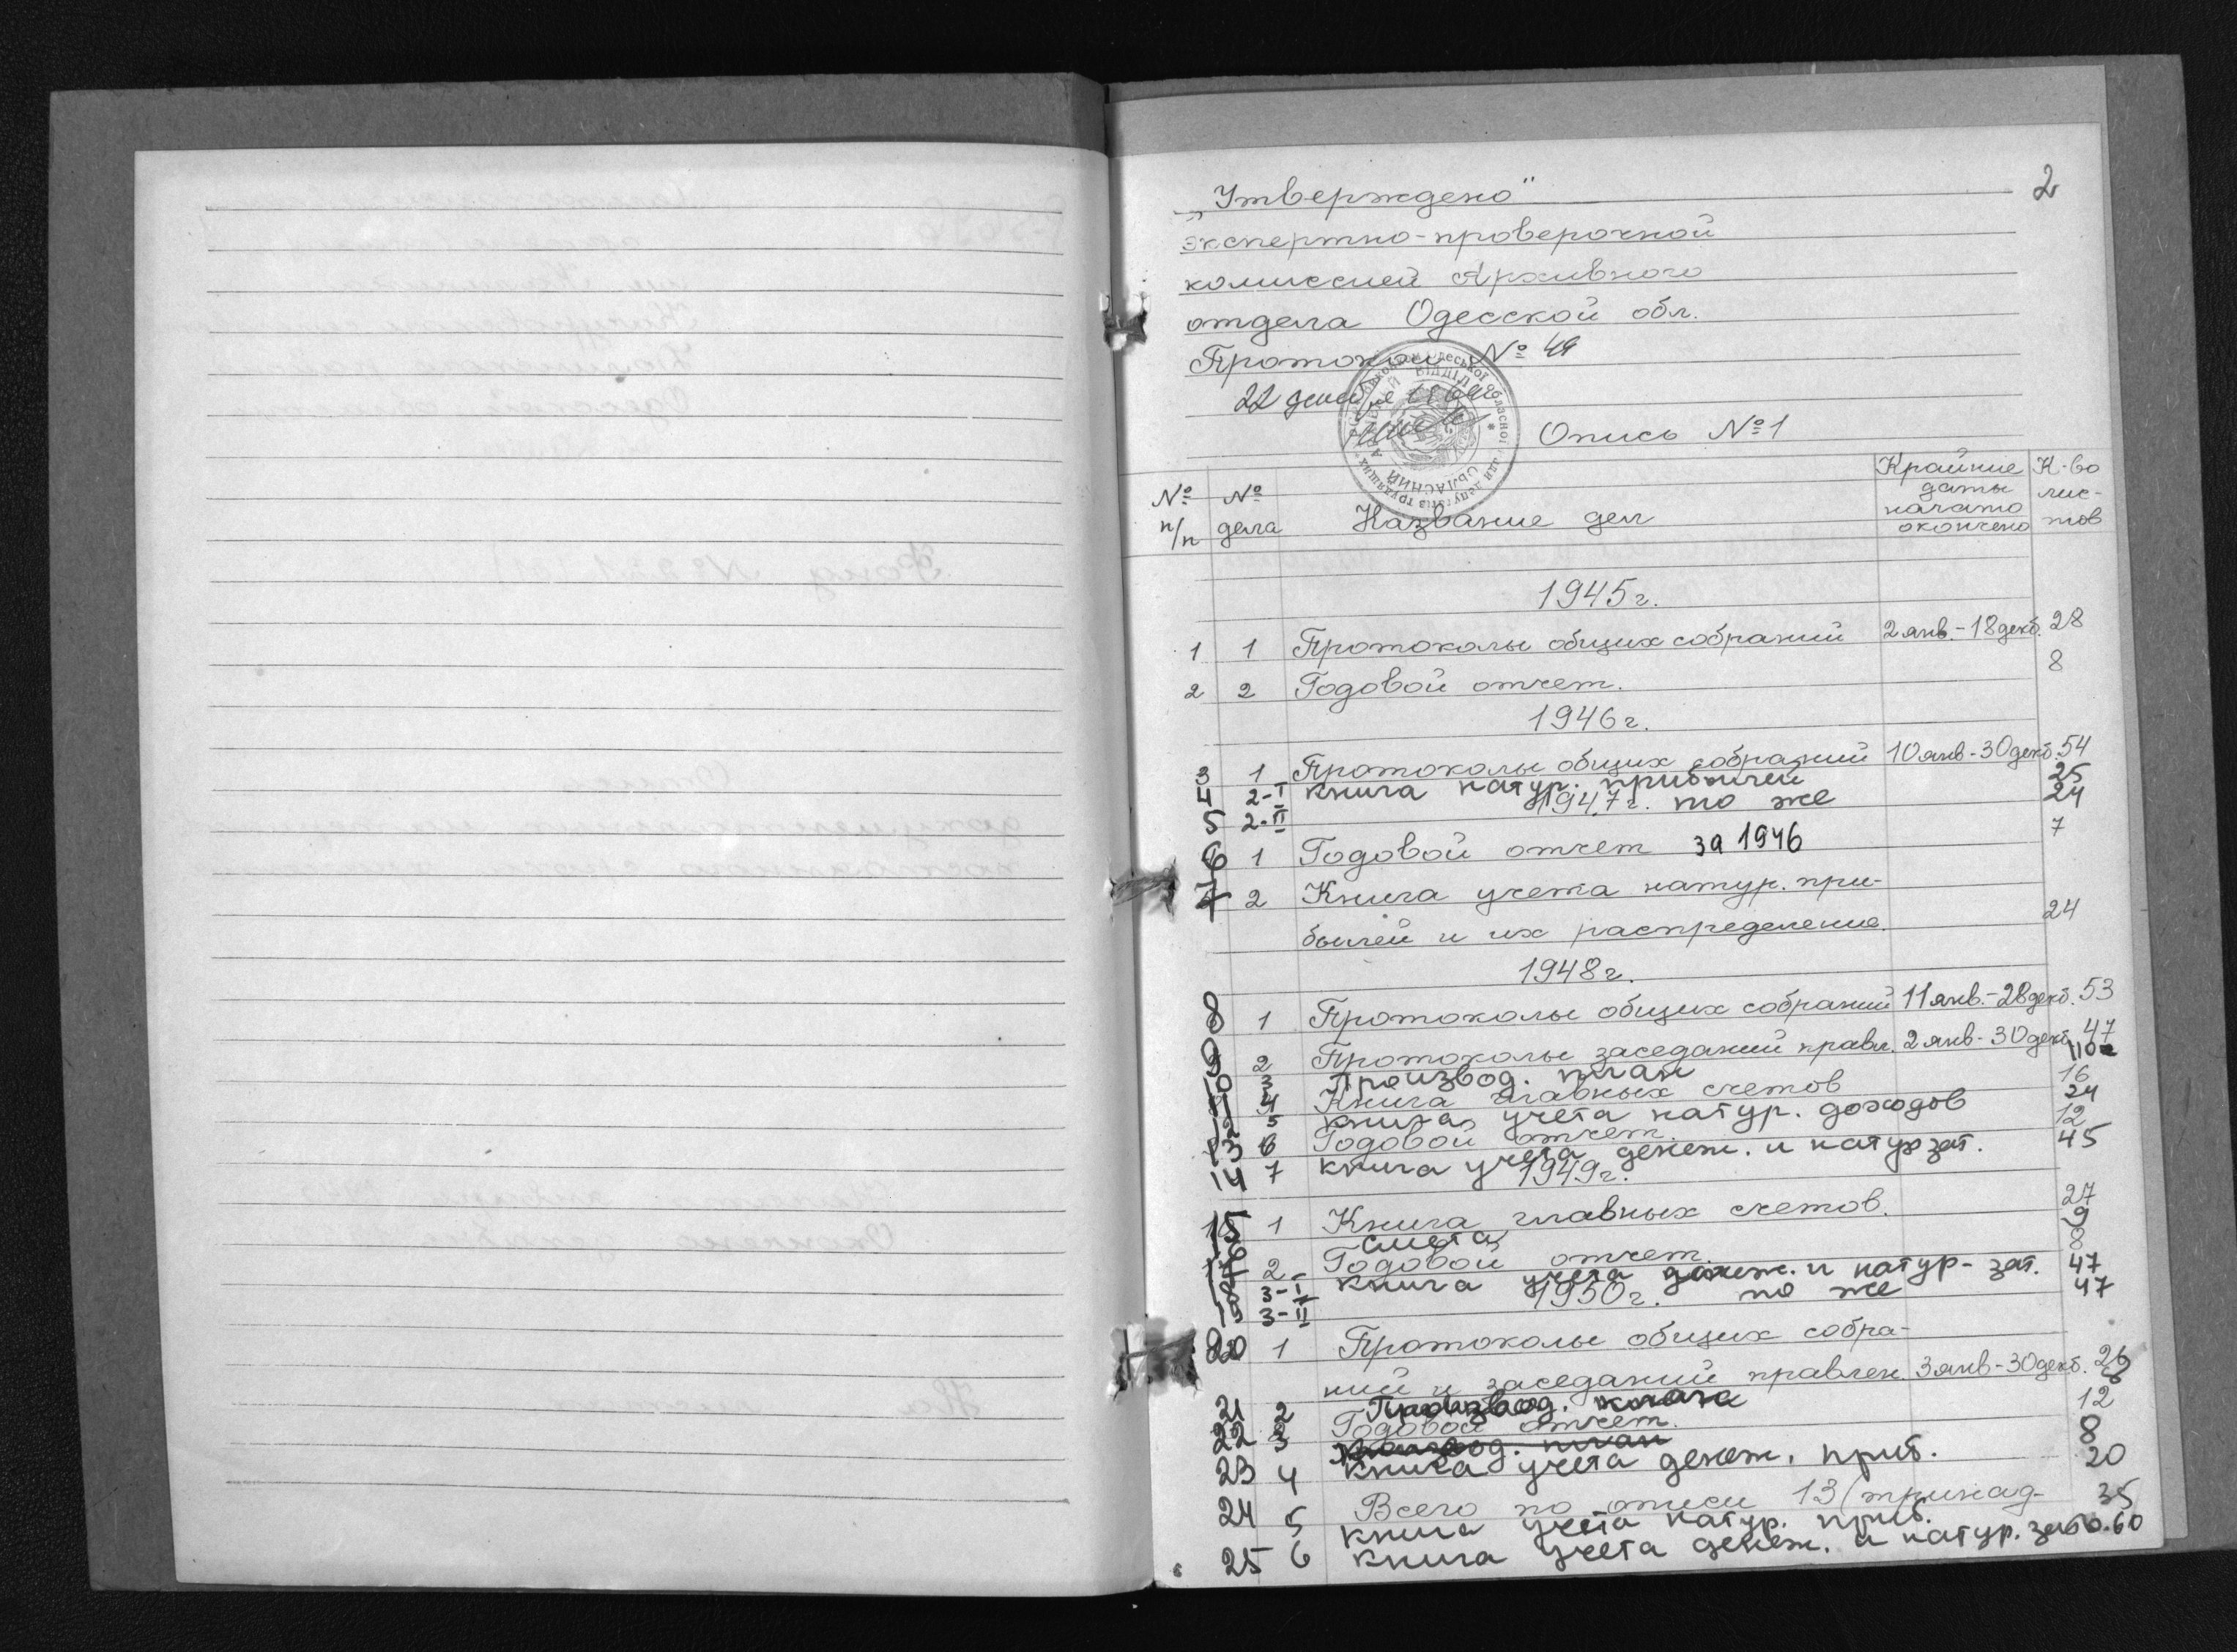 2
„Утверждено"
экспертно-проверочной
комиссией Архивного
отдела Одесской обл.
Протокол № 49
22
Опись № 1
№ п/п № дела Название дел Крайние даты начато окончено К-во листов
1945 г.
1 1 Протоколы общих собраний 2 янв.-18 декб. 28
2 2 Годовой отчет. 8
1946 г.
3 1 Протоколы общих собраний 10 янв-30 декб. 54
4 2-I книга натур. прибылей 25
1947 г.
5 2-II то же 24
6 1 Годовой отчет за 1946 7
7 2 Книга учета натур. при-
былей и их распределение. 24
1948 г.
8 1 Протоколы общих собраний 11 янв.-28 декб. 53
9 2 Протоколы заседаний правл. 2 янв-30 декб. 47
10 3 Производ. план
4 Книга главных счетов 16
5 книга учета натур. доходов 24
13 6 Годовой отчет. 12
14 7 книга учета денеж. и натур зат. 45
1949 г.
15 1 Книга главных счетов. 27
смета 9
2 Годовой отчет. 8
3-I книга учета денеж. и натур-зат. 47
1950 г.
3-II то же 47
20 1 Протоколы общих собра-
ний и заседаний правлен. 3 янв-30 декб. 26
21 2 Производ.
22 3 Годовой отчет. 12
Производ. план 8
23 4 книга учета денеж. приб. 20
Всего по описи 13 (тринад-
24 5 книга учета натур. приб. 35
25 6 книга учета денеж. и натур. 60